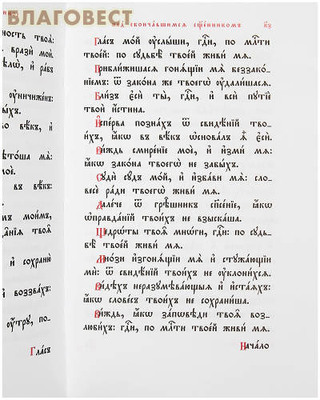 БЛАГОВЕСТ
над̾ скончавшимсѧ сщ҃енникомъ
ность твоѧ̀:
врази̑ мои̑
ѣлѡ̀, и҆ ра́бъ
ᲂу҆ничиже́нъ
бы́хъ.
во вѣ́къ, и҆
въ вѣ́къ:
и҆ сохраню̀
воззва́хъ:
ᲂу҆́тру, по-
Гла́съ
Гла́съ мо́й ᲂу҆слы́ши, гдⷭ҇и, по млⷭ҇ти
твое́й: по судьбѣ̀ твое́й живи́ мѧ.
Прибли́жишасѧ гонѧ́щїи мѧ̀ беззако́-
нїемъ: ѿ зако́на же твоегѡ̀ ᲂу҆дали́шасѧ.
Бли́з̾ є҆сѝ ты̀, гдⷭ҇и, и҆ всѝ пꙋтїѐ
твоѝ и҆́стина.
И҆спе́рва позна́хъ ѿ свидѣ́нїй твои́-
хъ, ꙗ҆́кѡ въ вѣ́къ ѡ҆снова́лъ ѧ҆̀ є҆сѝ.
Ви́ждь смире́нїе моѐ, и҆ и҆зми́ мѧ:
ꙗ҆́кѡ зако́на твоегѡ̀ не забы́хъ.
Сꙋдѝ сꙋ́дъ мо́й, и҆ и҆зба́ви мѧ̀: сло-
весѐ ра́ди твоегѡ̀ живи́ мѧ.
Дале́че ѿ грѣ̑шникъ сп҃се́нїе, ꙗ҆́кѡ
ѡ҆правда́нїй твои́хъ не взыска́ша.
Щедрѡ́ты твоѧ̑ мнѡ́ги, гдⷭ҇и: по сꙋдь-
бѣ̀ твое́й живи́ мѧ.
Мно́зи и҆згонѧ́щїи мѧ̀ и҆ стꙋжа́ющїи
мѝ: ѿ свидѣ́нїй твои́хъ не ᲂу҆клони́хсѧ.
Ви́дѣхъ неразꙋмѣва́ющыѧ и҆ и҆ста́ѧхъ:
ꙗ҆́кѡ слове́съ твои́хъ не сохрани́ша.
Ви́ждь, ꙗ҆́кѡ за́пѡвѣди твоѧ̑ воз-
люби́хъ: гдⷭ҇и, по млⷭ҇ти твое́й живи́ мѧ.
Нача́ло